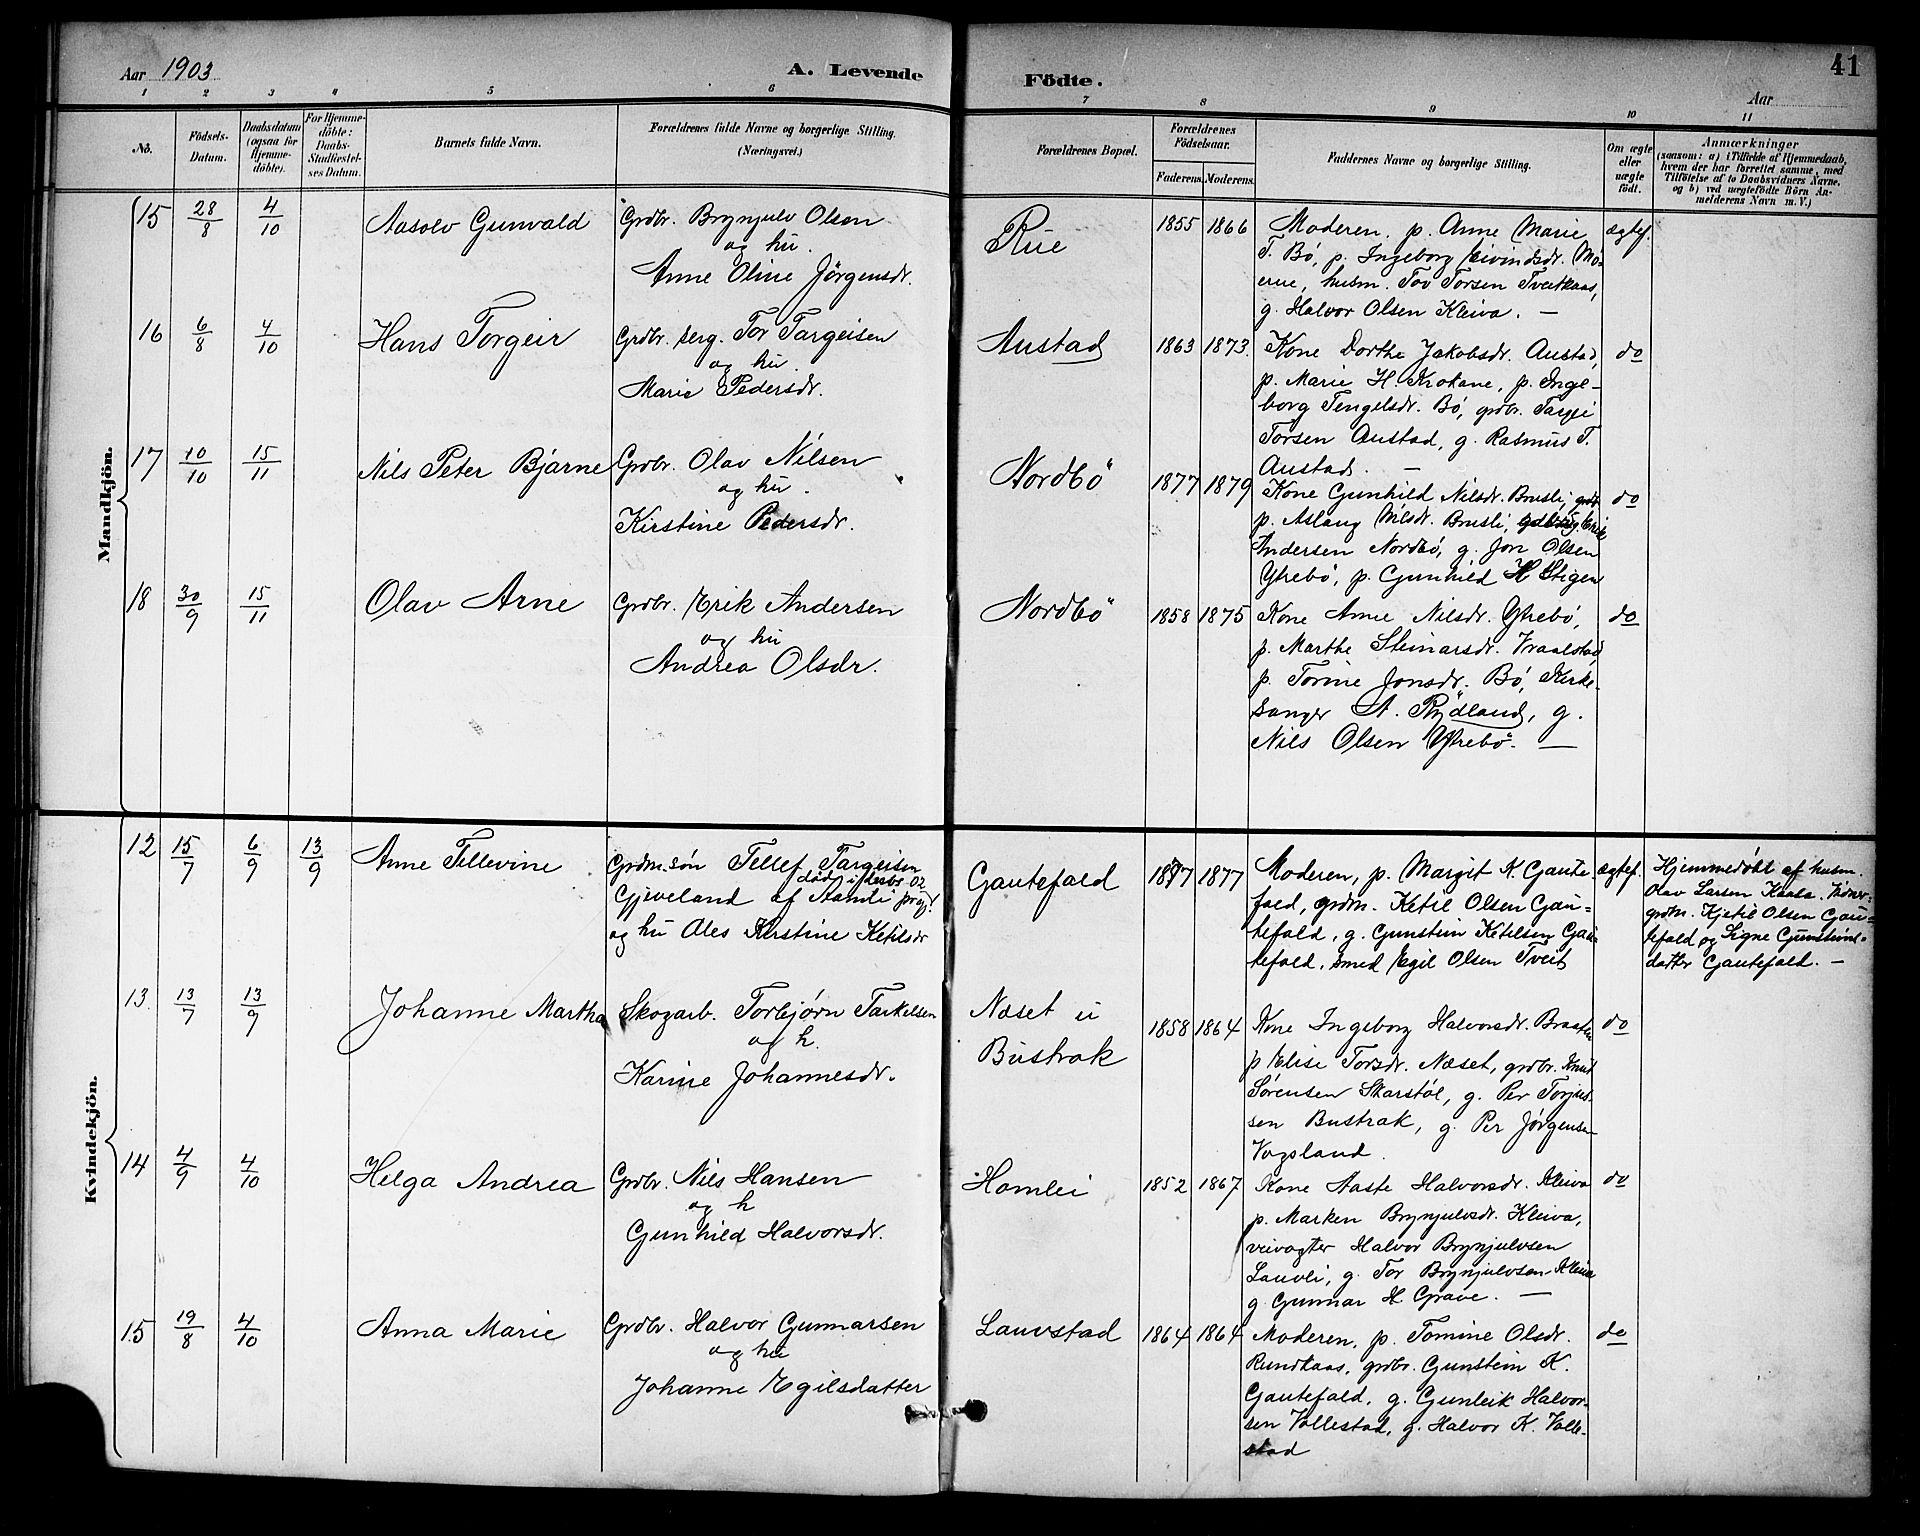 Aar 1903
A. Levende
Födte.
41
Aar
1 2 3 4 5 6 7 8 9 10 11
No.
Födsels-
Datum.
Daabsdatum
(ogsaa for
Hjemme-
döbte).
For Hjemme-
döbte:
Daabs-
Stadfæstel-
ses Datum.
Barnets fulde Navn.
Forældrenes fulde Navne og borgerlige Stilling.
(Næringsvei.)
Forældrenes Bopæl.
Forældrenes
Födselsaar.
Faderens.
Moderens.
Faddernes Navne og borgerlige Stilling.
Om ægte
eller
uægte
født.
Anmærkninger
(saasom: a) i Tilfælde af Hjemmedaab,
hvem der har forrettet samme, med
Tilföielse af to Daabsvidners Navne,
og b) ved uegtefödte Börn An-
melderens Navn m. V.)
Mandkjön.
15 28/8 4/10
Aasolv Gunvald
Grdbr. Brynjulv Olsen
og hu.
Anne Oline Jörgensdr.
Rue
1855 1866
Moderen, p. Anne Marie
T. Bø, p. Ingeborg Eivindsdr. Mo-
ene, husm. Tov Torsen Tveitkaas,
g. Halvor Olsen Kleiva. —
ægtef.
16 6/8 4/10
Hans Torgeir
Grdbr. serg. Tor Targeisen
og hu.
Marie Pedersdr.
Austad
1863 1873.
Kone Dorthe Jakobsdr. Austad,
p. Marie H. Krokane, p. Inge-
borg Tengelsdr. Bø, grdbr. Targei
Torsen Austad, g. Rasmus T.
Austad. —
do
17 10/10 15/11
Nils Peter Bjarne
Grdbr. Olav Nilsen
og hu.
Kirstine Pedersdr.
Nordbö
1877 1879
Kone Gunhild Nilsdr. Brusli,
p. Aslaug Nilsdr. Brusli, Erik
Andersen Nordbø, g. Jon Olsen
Ytrebø, p. Gunhild H Stigen
do
18 30/9 15/11
Olav Arne
Grdbr. Erik Andersen
og hu
Andrea Olsdr.
Nordbö
1858 1875
Kone Anne Nilsdr. Ytrebø,
p. Marthe Steinarsdr. Vraalstad
p. Torine Jonsdr. Bø, Kirke-
sanger A. Rydland, g.
Nils Olsen Ytrebø. —
do
Kvindekjön.
12 15/7 6/9 13/9
Anne Tellevine
Grdm.søn Tellef Targeisen
død i desbr 02
Gjiveland af Aamli prgj.
og hu Ales Kirstine Ketilsdr
Gautefald
1877 1877
Moderen, p. Margit K. Gaute-
fald, grdm. Ketil Olsen Gau-
tefald, g. Gunstein Ketilsen Gau-
tefald, smed Egil Olsen Tveit
ægtef.
Hjemmedøbt af husm.
Olav Larsen Kaasa. Vidner
grdm. Kjetil Olsen Gau-
tefald og Signe Gunsteins-
datter Gautefald. —
13. 13/7 13/9
Johanne Martha
Skogarb. Torbjørn Tarkelsen
og h.
Karine Johannesdr.
Næset u
Bustrak
1858 1864
Kone Ingeborg Halvorsdr. Braaten
p Elise Torsdr. Næset, grdbr. Knud
Sørensen Skarstøl, g. Per Torjus-
sen Bustrak, g. Per Jørgensen
Vogsland.
do
14 4/9 4/10
Helga Andrea
Grdbr. Nils Hansen
og h
Gunhild Halvorsdr.
Homlei
1852 1867
Kone Aaste Halvorsdr. Kleiva
p. Marken Brynjulvsdr. Kleiva,
veivogter Halvor Brynjulvsen
Lauvli, g. Tor Brynjulvsen Kleiva
g. Gunnar H. Grave. —
do
15 19/8 4/10
Anna Marie
Grdbr. Halvor Gunnarsen
og hu
Johanne Egilsdatter
Lauvstad
1864 1864
Moderen, p. Tomine Olsdr.
Rundkaas, grdbr. Gunstein K.
Gautefald, g. Gunleik Halvor-
sen Vollestad, g. Halvor K. Volle-
stad
do